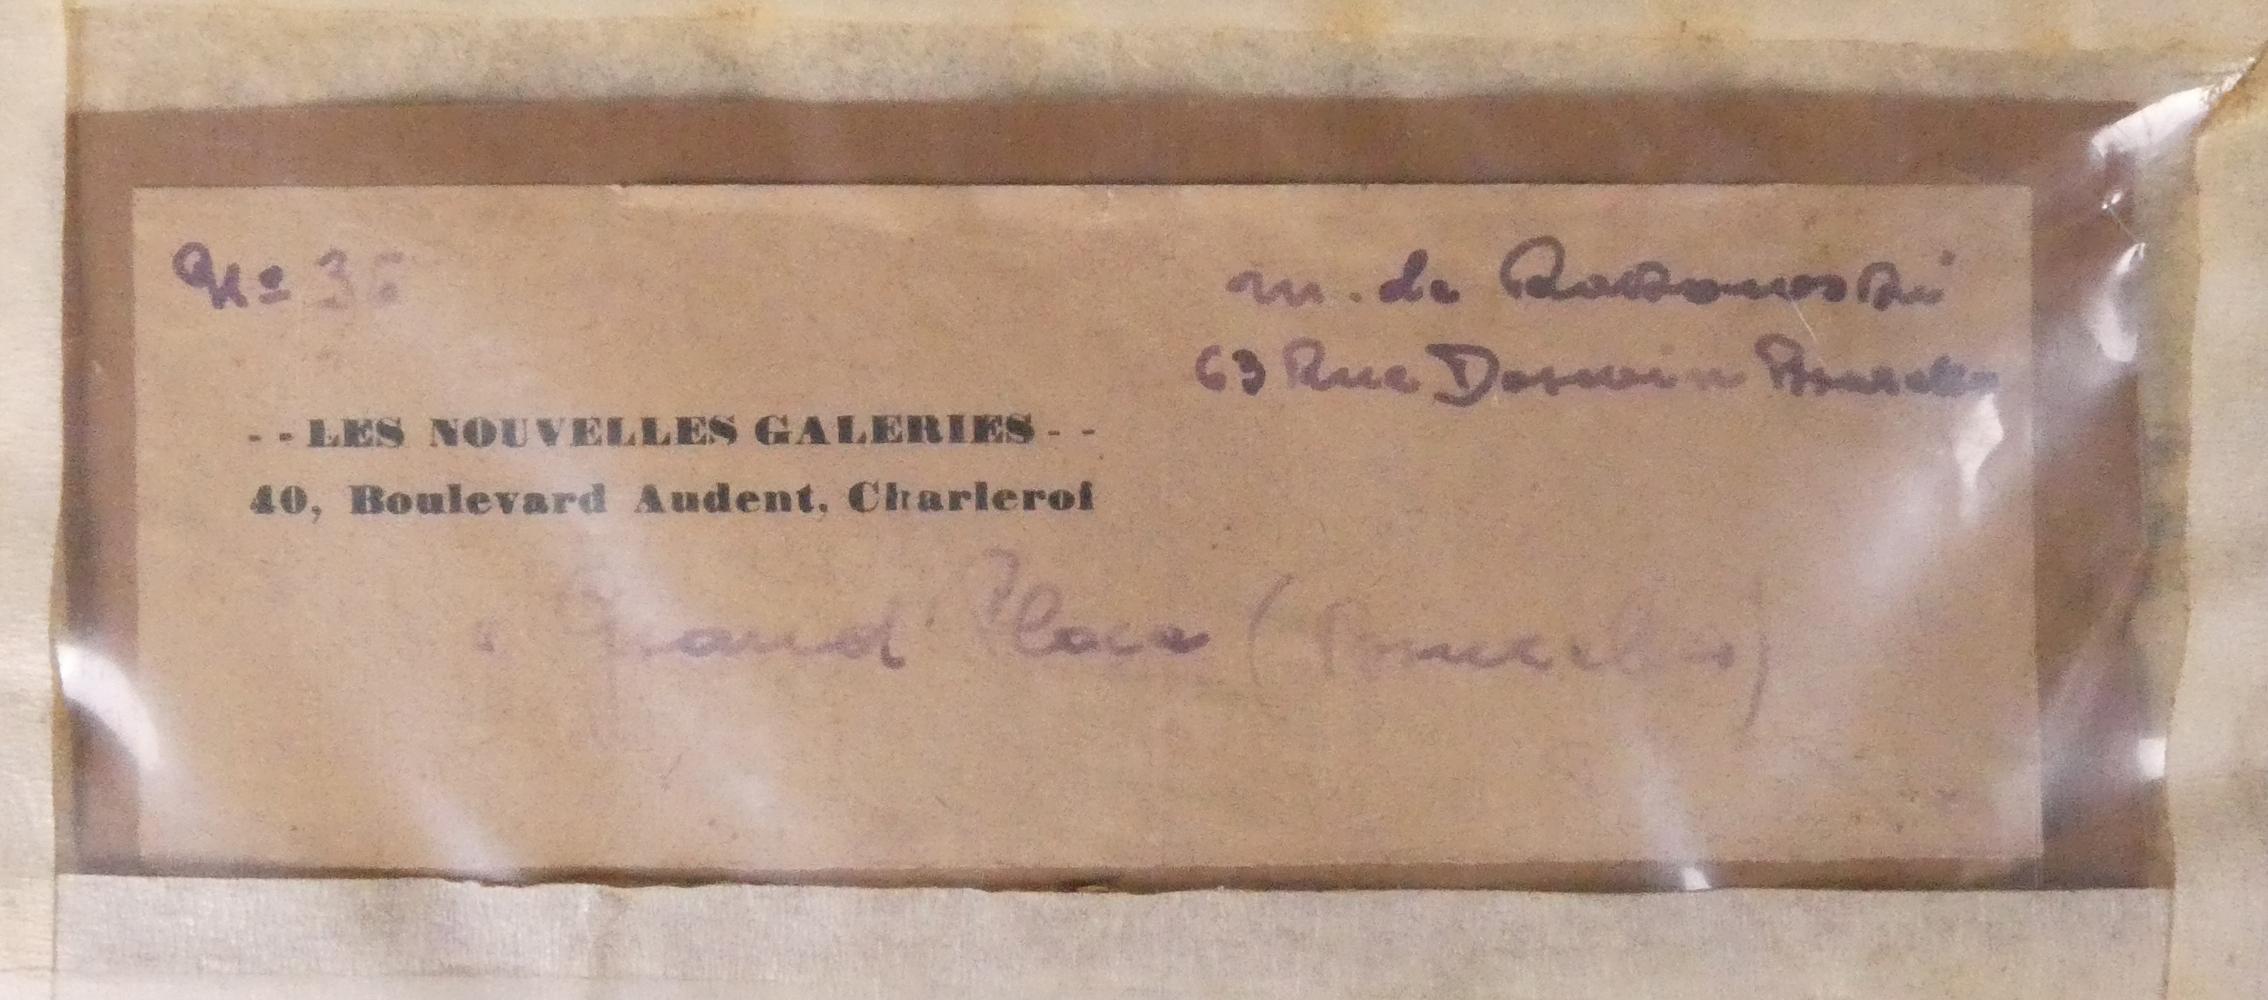 No 36
M. de
63 Rue Darwin Bruxelles
-- LES NOUVELLES GALERIES --
40, Boulevard Audent, Charleroi
" Grand' Place (Bruxelles)